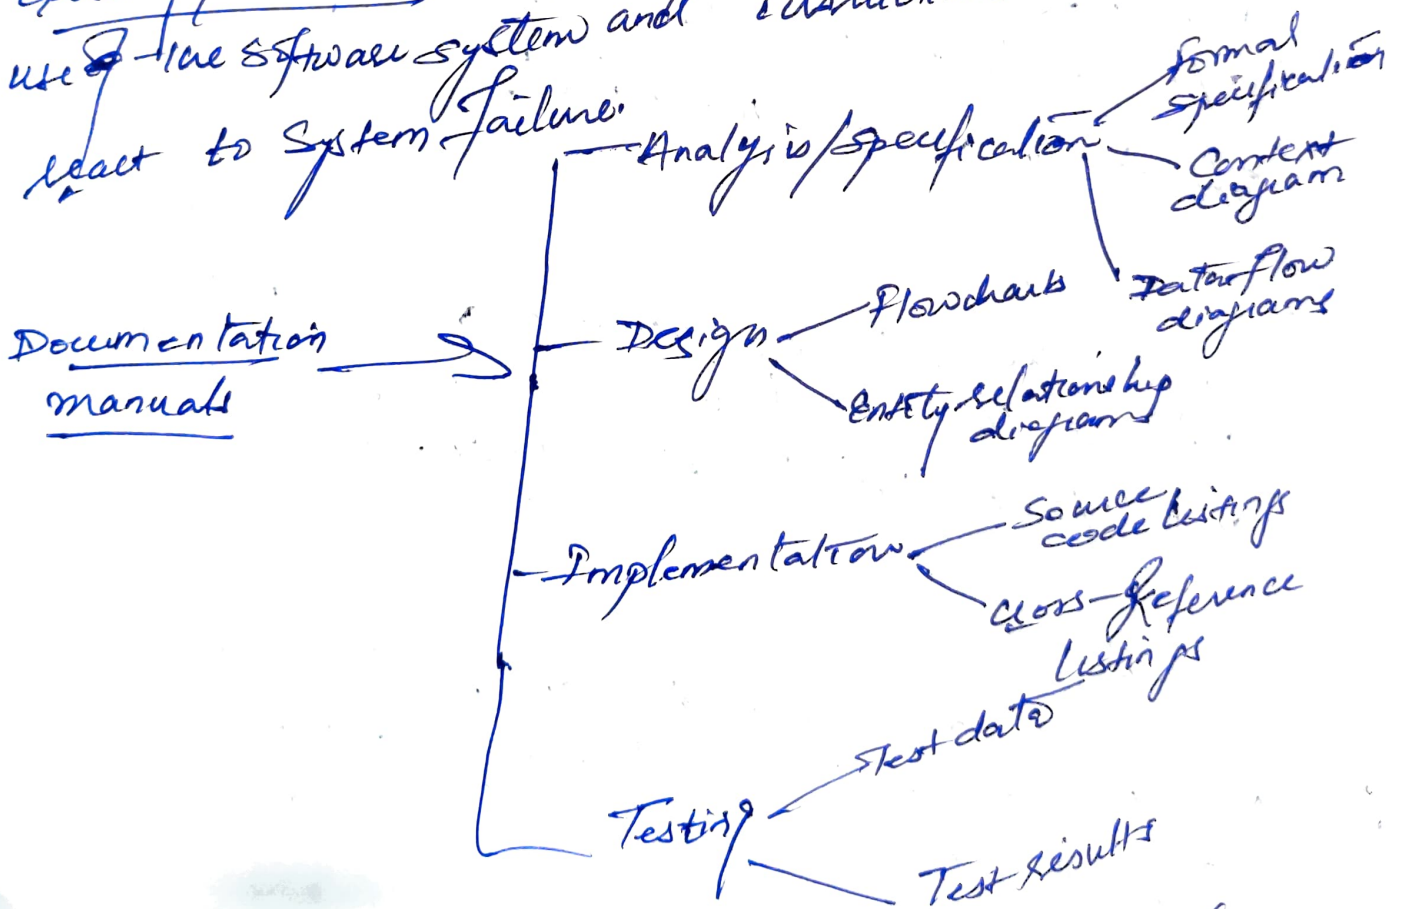 use of the software system and
react to System failure.
Analysis/specification
Formal
specification
Context
diagram
Data flow
diagrams
Documentation
manuals
Design
Flowcharts
Entity-relationship
diagrams
Implementation
Source
code listings
Cross-Reference
Listings
Testing
Test data
Test results